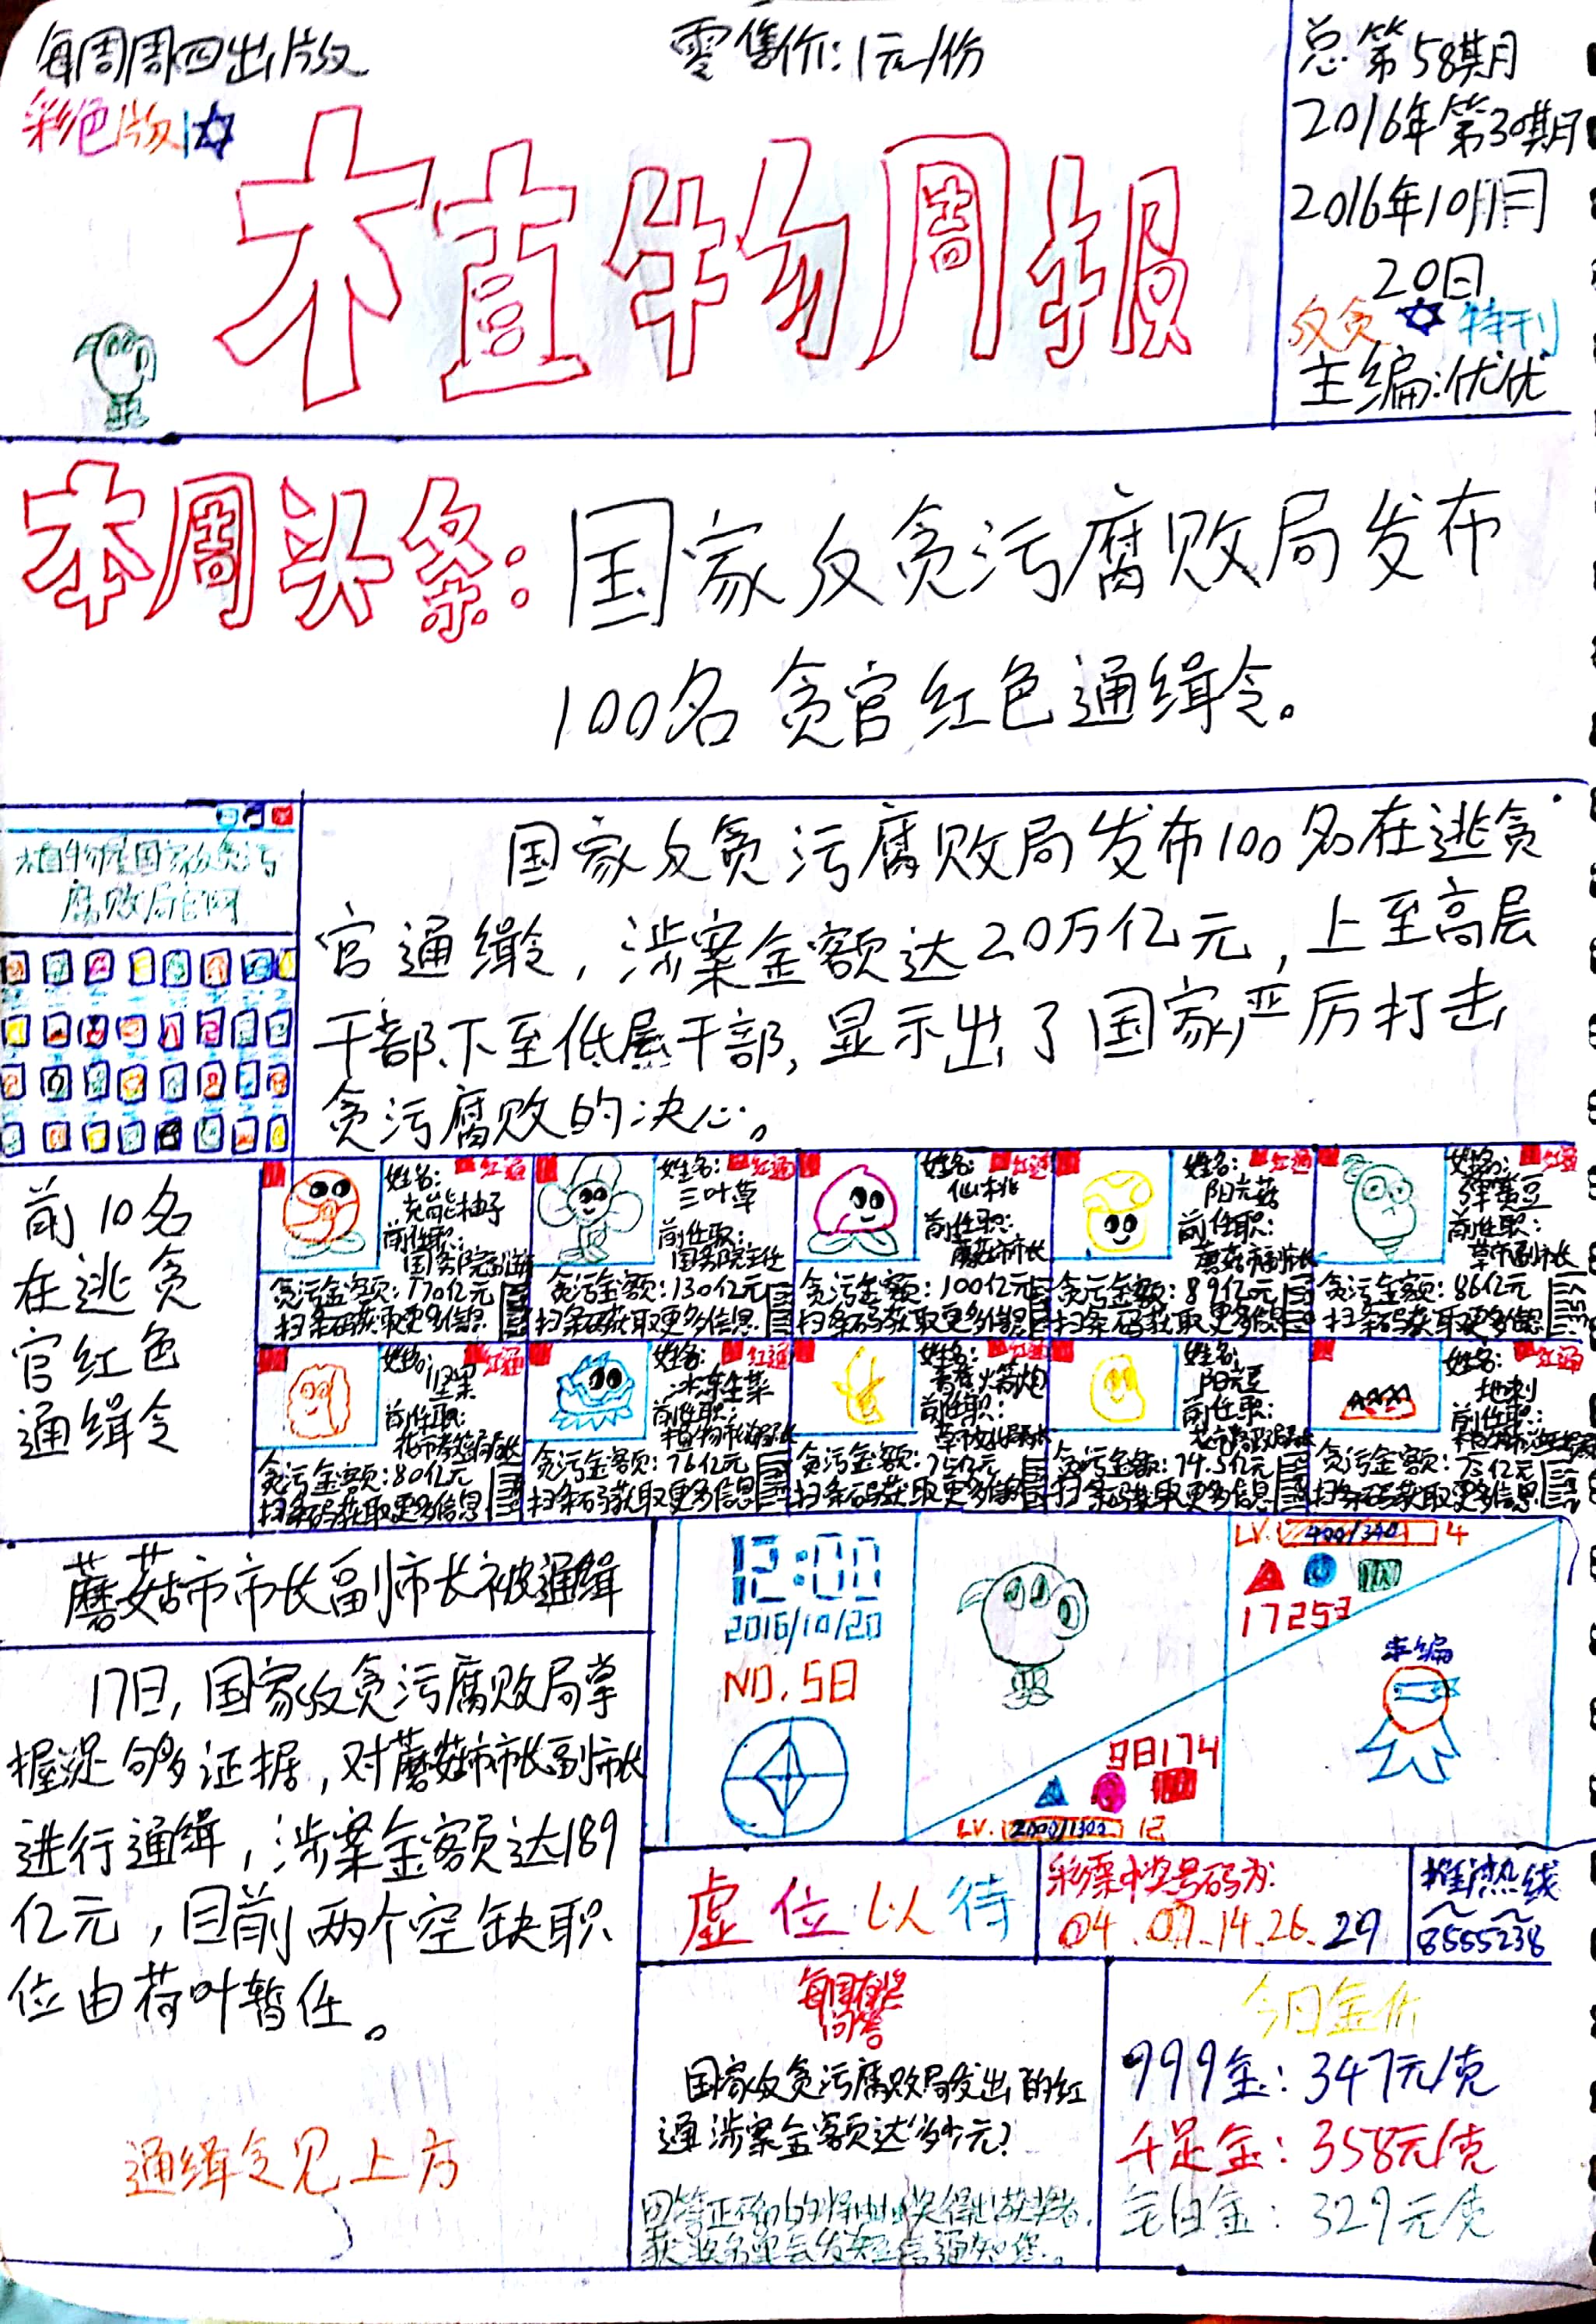 每周周四出版
零售价:1元/份
总第58期
2016年第30期
2016年10月
20日
彩色版
植物周报
反贪 特刊
主编:优优
本周头条:国家反贪污腐败局发布
100名贪官红色通缉令。
植物屋国家反贪污
腐败局官网
国家反贪污腐败局发布100名在逃贪
官通缉令,涉案金额达20万亿元,上至高层
干部下至低层干部,显示出了国家严厉打击
贪污腐败的决心。
前10名
在逃贪
官红色
通缉令
红通
姓名:
充能柚子
前任职:
贪污金额:170亿元
扫条码获取更多信息
红通
姓名:
三叶草
前任职:
国务院主任
贪污金额:130亿元
扫条码获取更多信息
红通
姓名:
仙桃
前任职:
蘑菇市市长
贪污金额:100亿元
扫条码获取更多信息
红通
姓名:
阳光菇
前任职:
蘑菇市副市长
贪污金额:89亿元
扫条码获取更多信息
红通
姓名:
弹簧豆
前任职:
草市副市长
贪污金额:86亿元
扫条码获取更多信息
红通
姓名:
坚果
前任职:
贪污金额:80亿元
扫条码获取更多信息
红通
姓名:
冰冻生菜
前任职:
贪污金额:76亿元
扫条码获取更多信息
红通
姓名:
香蕉火箭炮
前任职:
贪污金额:75亿元
扫条码获取更多信息
姓名:
阳光豆
前任职:
贪污金额:74.5亿元
扫条码获取更多信息
红通
姓名:
地刺
前任职:
贪污金额:73亿元
扫条码获取更多信息
蘑菇市市长副市长被通缉
17日,国家反贪污腐败局掌
握足够多证据,对蘑菇市市长副市长
进行通缉,涉案金额达189
亿元,目前两个空缺职
位由荷叶暂任。
通缉令见上方
12:00
2016/10/20
NO.58
LV. 400/340 4
17253
主编
98174
LV. 2000/1300 12
虚位以待
彩票中奖号码为:
04.07.14.26.29
热线
8555238
每周有奖
问答
国家反贪污腐败局发出的红
通涉案金额达多少元?
今日金价
999金:347元/克
千足金:358元/克
宅白金:329元/克